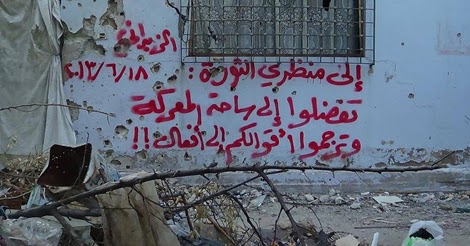 إلى منظري الثورة :
تفضلوا إلى ساحة المعركة
وترجموا أقوالكم إلى أفعال !!
٢٠١٣/٦/١٨